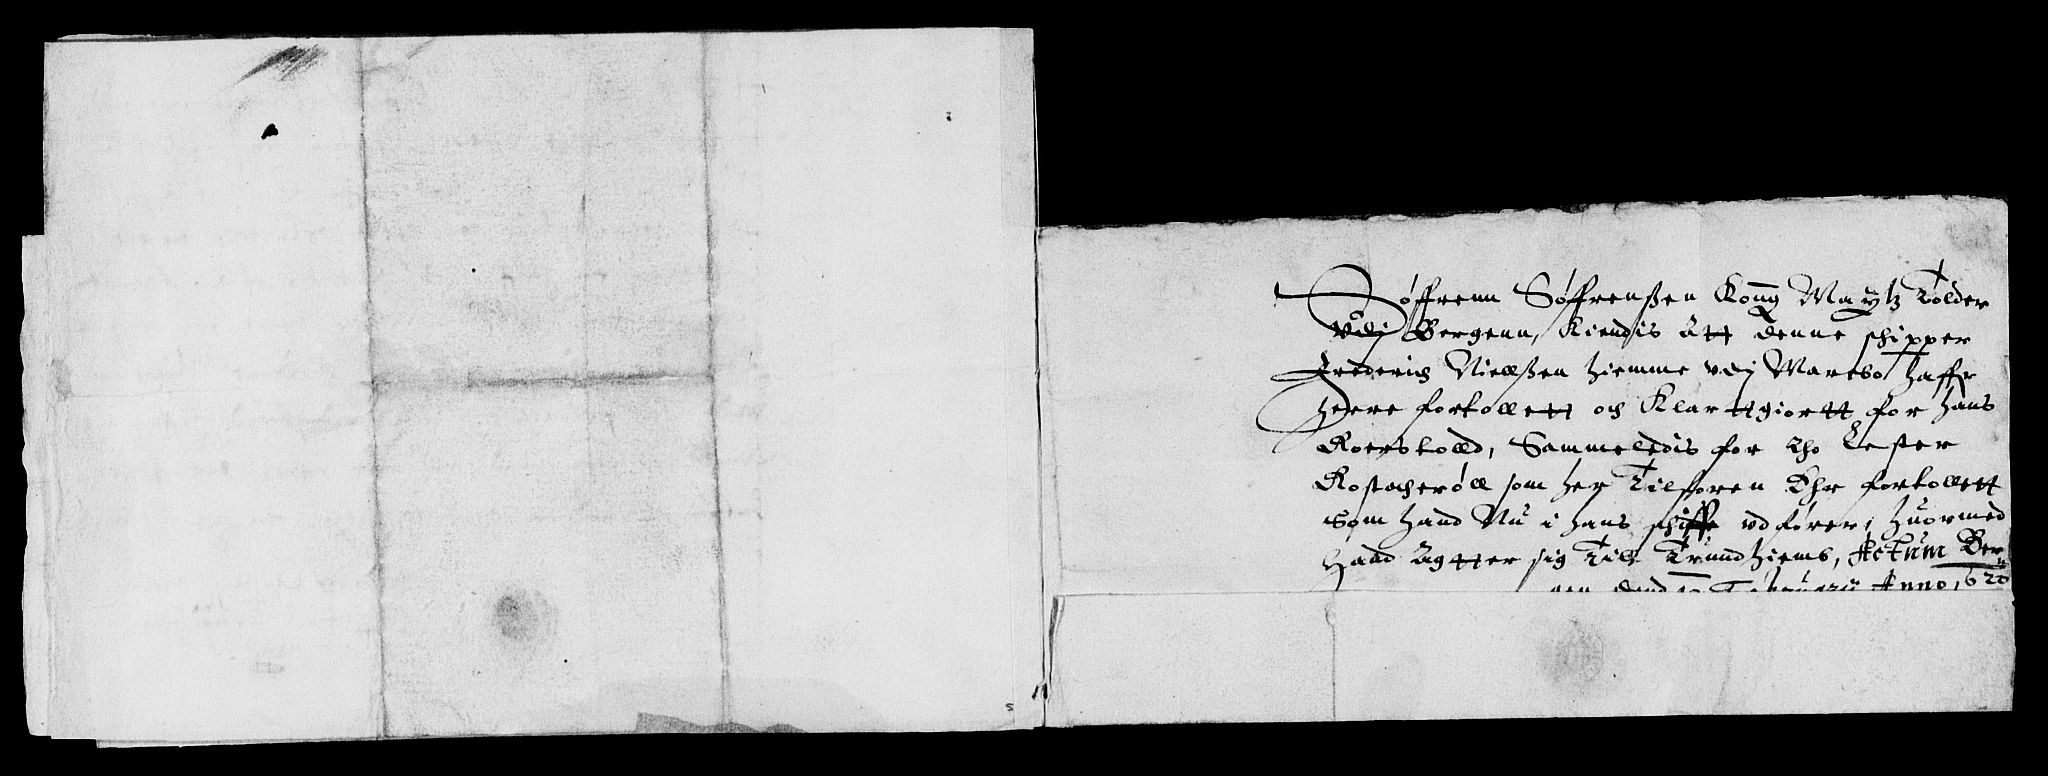 Søffrenn Søffrenßen Kong Maytz Tolder
vdj Bergenn, Kiendis Att denne schipper
Frederich Nielßen hiemme vdj Marsbo haffr
heere fortollett och Klarttgiortt for hans
Roerstolld, Sammeledis for tho Lester
Rostocherøll som her Tilforen Ehr fortollett
som hand Nu i hans schiffe vdfører, huormed
Hand Agtter sig Till Trundhiems, Actum Ber
gen dend Februarij Anno, 620